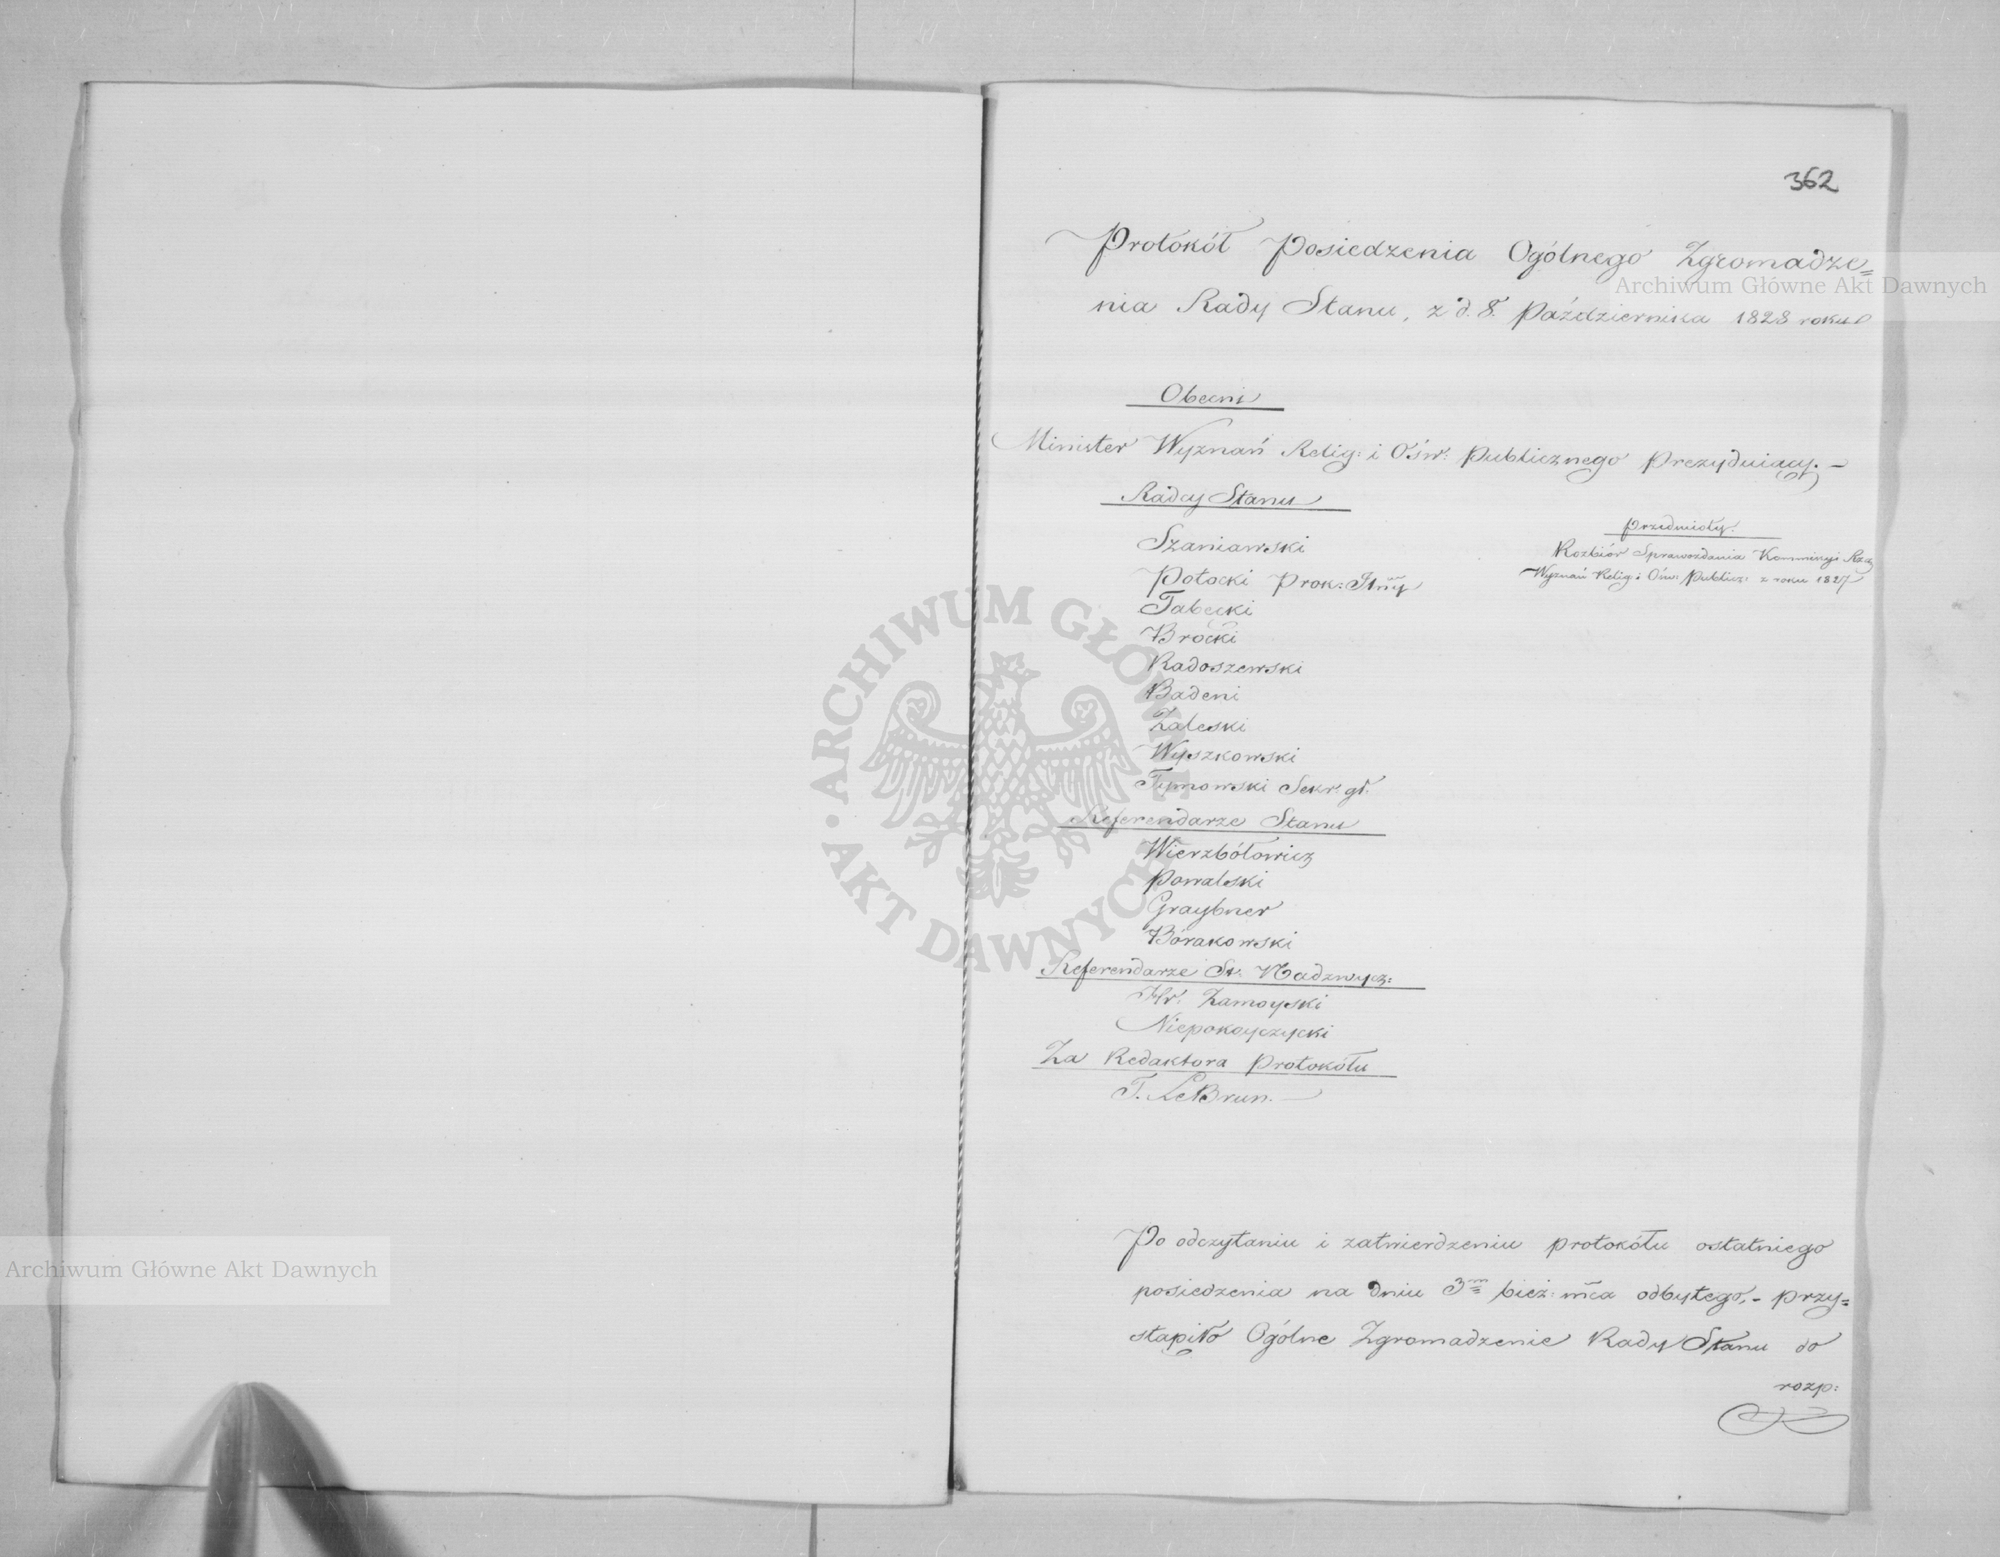 362
Protokół Posiedzenia Ogólnego Zgromadze=
nia Rady Stanu, z d. 8. Października 1828 roku
Obecni
Minister Wyznań Relig: i Ośw: Publicznego Prezydujący. –
Radcy Stanu
Szaniawski
Potocki Prok: Jlny
Tabęcki
Brocki
Radoszewski
Badeni
Zaleski
Wyszkowski
Tymowski Sekr. gł.
Referendarze Stanu
Wierzbółowicz
Powalski
Graybner
Bórakowski
Referendarze St. Nadzwycz:
Hr. Zamoyski
Niepokoyczycki
Za Redaktora Protokółu
T. LeBrun. –
Przedmioty.
Rozbiór Sprawozdania Kommissyi Rzą
Wyznań Relig: i Ośw: Publicz: z roku 1827
Po odczytaniu i zatwierdzeniu protokółu ostatniego
posiedzenia na dniu 3m bież: mca odbytego, – przy=
stąpiło Ogólne Zgromadzenie Rady Stanu do
rozp:
Archiwum Główne Akt Dawnych
Archiwum Główne Akt Dawnych
ARCHIWUM GŁÓWNE · AKT DAWNYCH ·